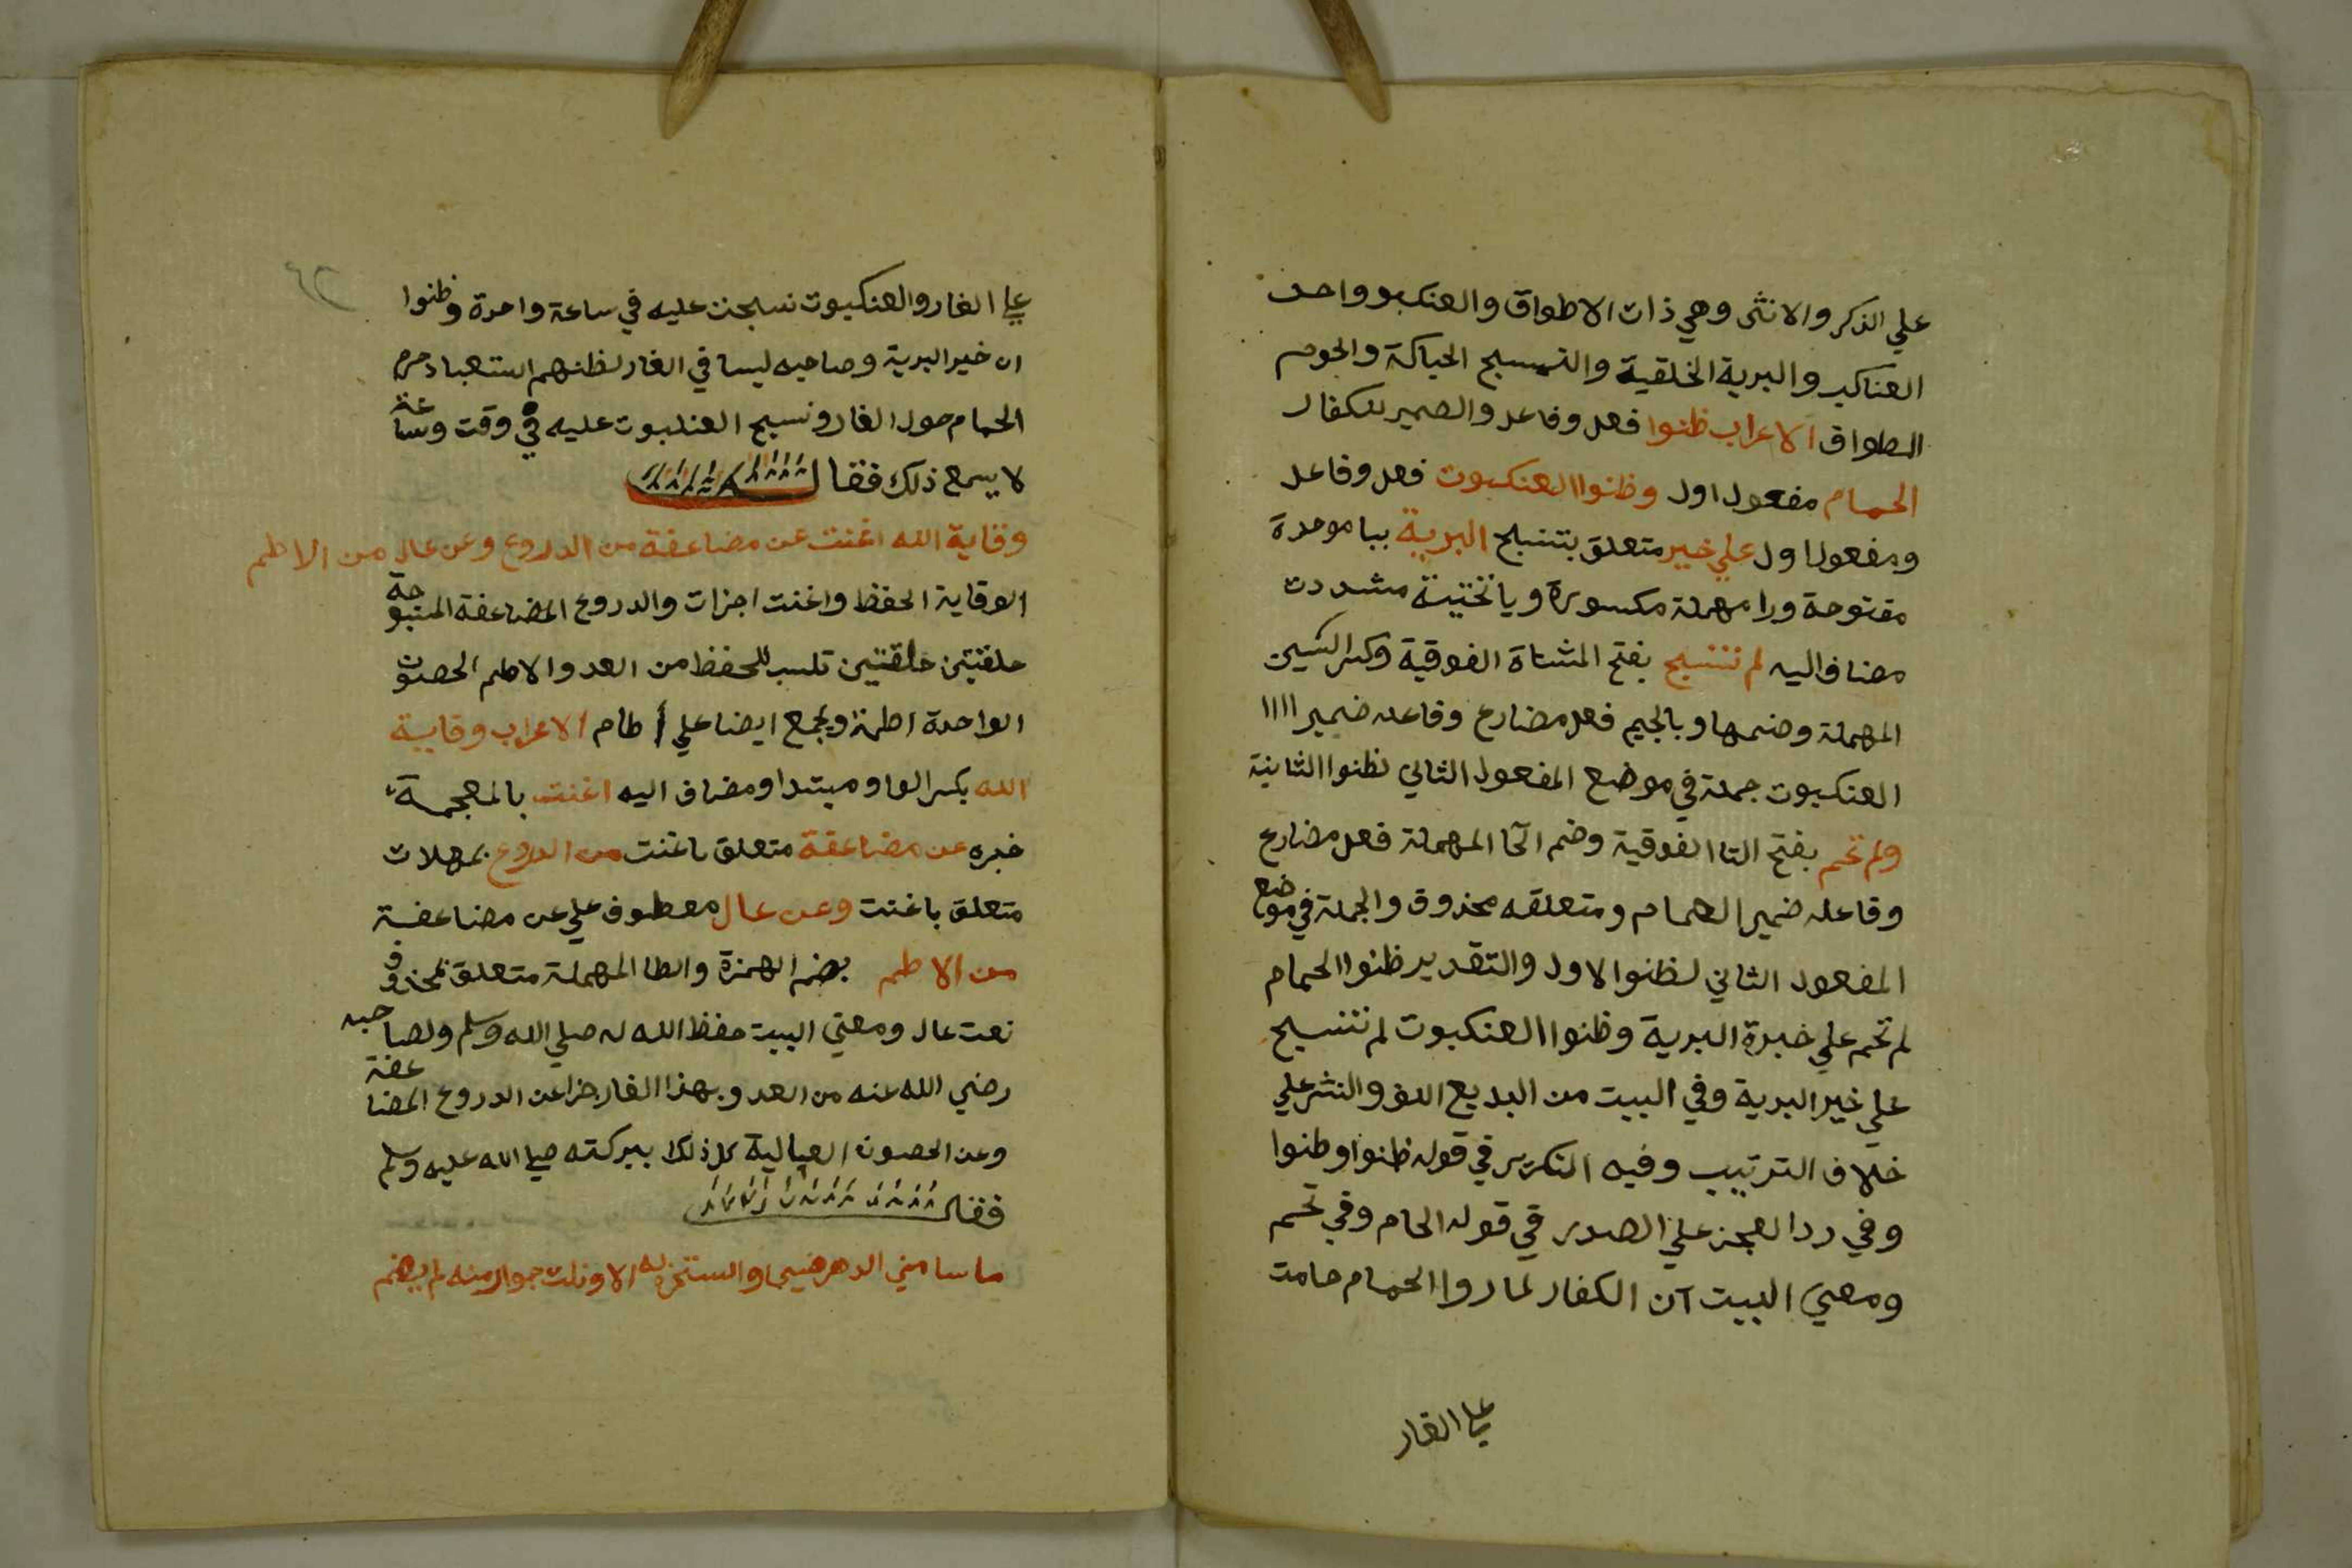 علي الذكر والانثى وهي ذات الاطواق والعنكبو واحد
العناكب والبرية الخلقية والتسسبح الحياكة والحوم
الطواق الاعراب ظنوا فعل وفاعل والضمير للكفار
الحمام مفعول اول وظنوا العنكبوت فعل وفاعل
ومفعول اول علي خير متعلق بتنسبح البرية ببا موحدة
مفتوحة ورا مهملة مكسورة ويا تختية مشددت
مضاف اليه لم تنسبح بفتح المثناة الفوقية وكسر السين
المهملة وضمها وبالجيم فعل مضارع وفاعله ضمير
العنكبوت جملة في موضع المفعول الثاني لظنوا الثانية
ولم تحم بفتح التا الفوقية وضم الحا المهملة فعل مضارع
وفاعله ضمير الحمام ومتعلقه محذوف والجملة في موضع
المفعول الثاني لظنوا الاول والتقدير ظنوا الحمام
لم تحم علي خيرة البرية وظنوا العنكبوت لم تنسبح
علي خير البرية وفي البيت من البديع اللف والنشر علي
خلاف الترتيب وفيه التكرير في قوله ظنوا وظنوا
وفي رد العجز علي الصدر في قوله الحام وفي تحم
ومعني البيت ان الكفار لما روا الحمام حامت
علي الغار
علي الغار والعنكبوت نسجت عليه في ساعة واحدة وظنوا
ان خير البرية وصاحبه ليسا في الغار لظنهم استعباد حوم
الحمام حول الغار ونسيج العنكبوت عليه في وقت وساعة
لا يسمع ذلك فقال
وقاية الله اغنت عن مضاعفة من الدروع وعن عال من الاطم
الوقاية الحفظ واغنت اجزات والدروع المضاعفة المنسوجة
حلقتين حلقتين تلبس للحفظ من العدو والاطم الحصون
الواحدة اطمة ويجمع ايضا علي اطام الاعراب وقاية
الله بكسر الواو مبتدا ومضاف اليه اغنت بالمعجمة
خبره عن مضاعفة متعلق باغنت من الدروع بمهلات
متعلق باغنت وعن عال معطوف علي عن مضاعفة
من الاطم بضم الهمزة والطا المهملة متعلق بمحذوف
نعت عال ومعني البيت حفظ الله له صلي الله وسلم ولصاحبه
رضي الله عنه من العدو بهذا الغار جزا عن الدروع المضاعفة
وعن الحصون العالية كل ذلك ببركته صلي الله عليه وسلم
فقال
ما سامني الدهر ضيما واستجرت به الا ونلت جوار منه لم يضم